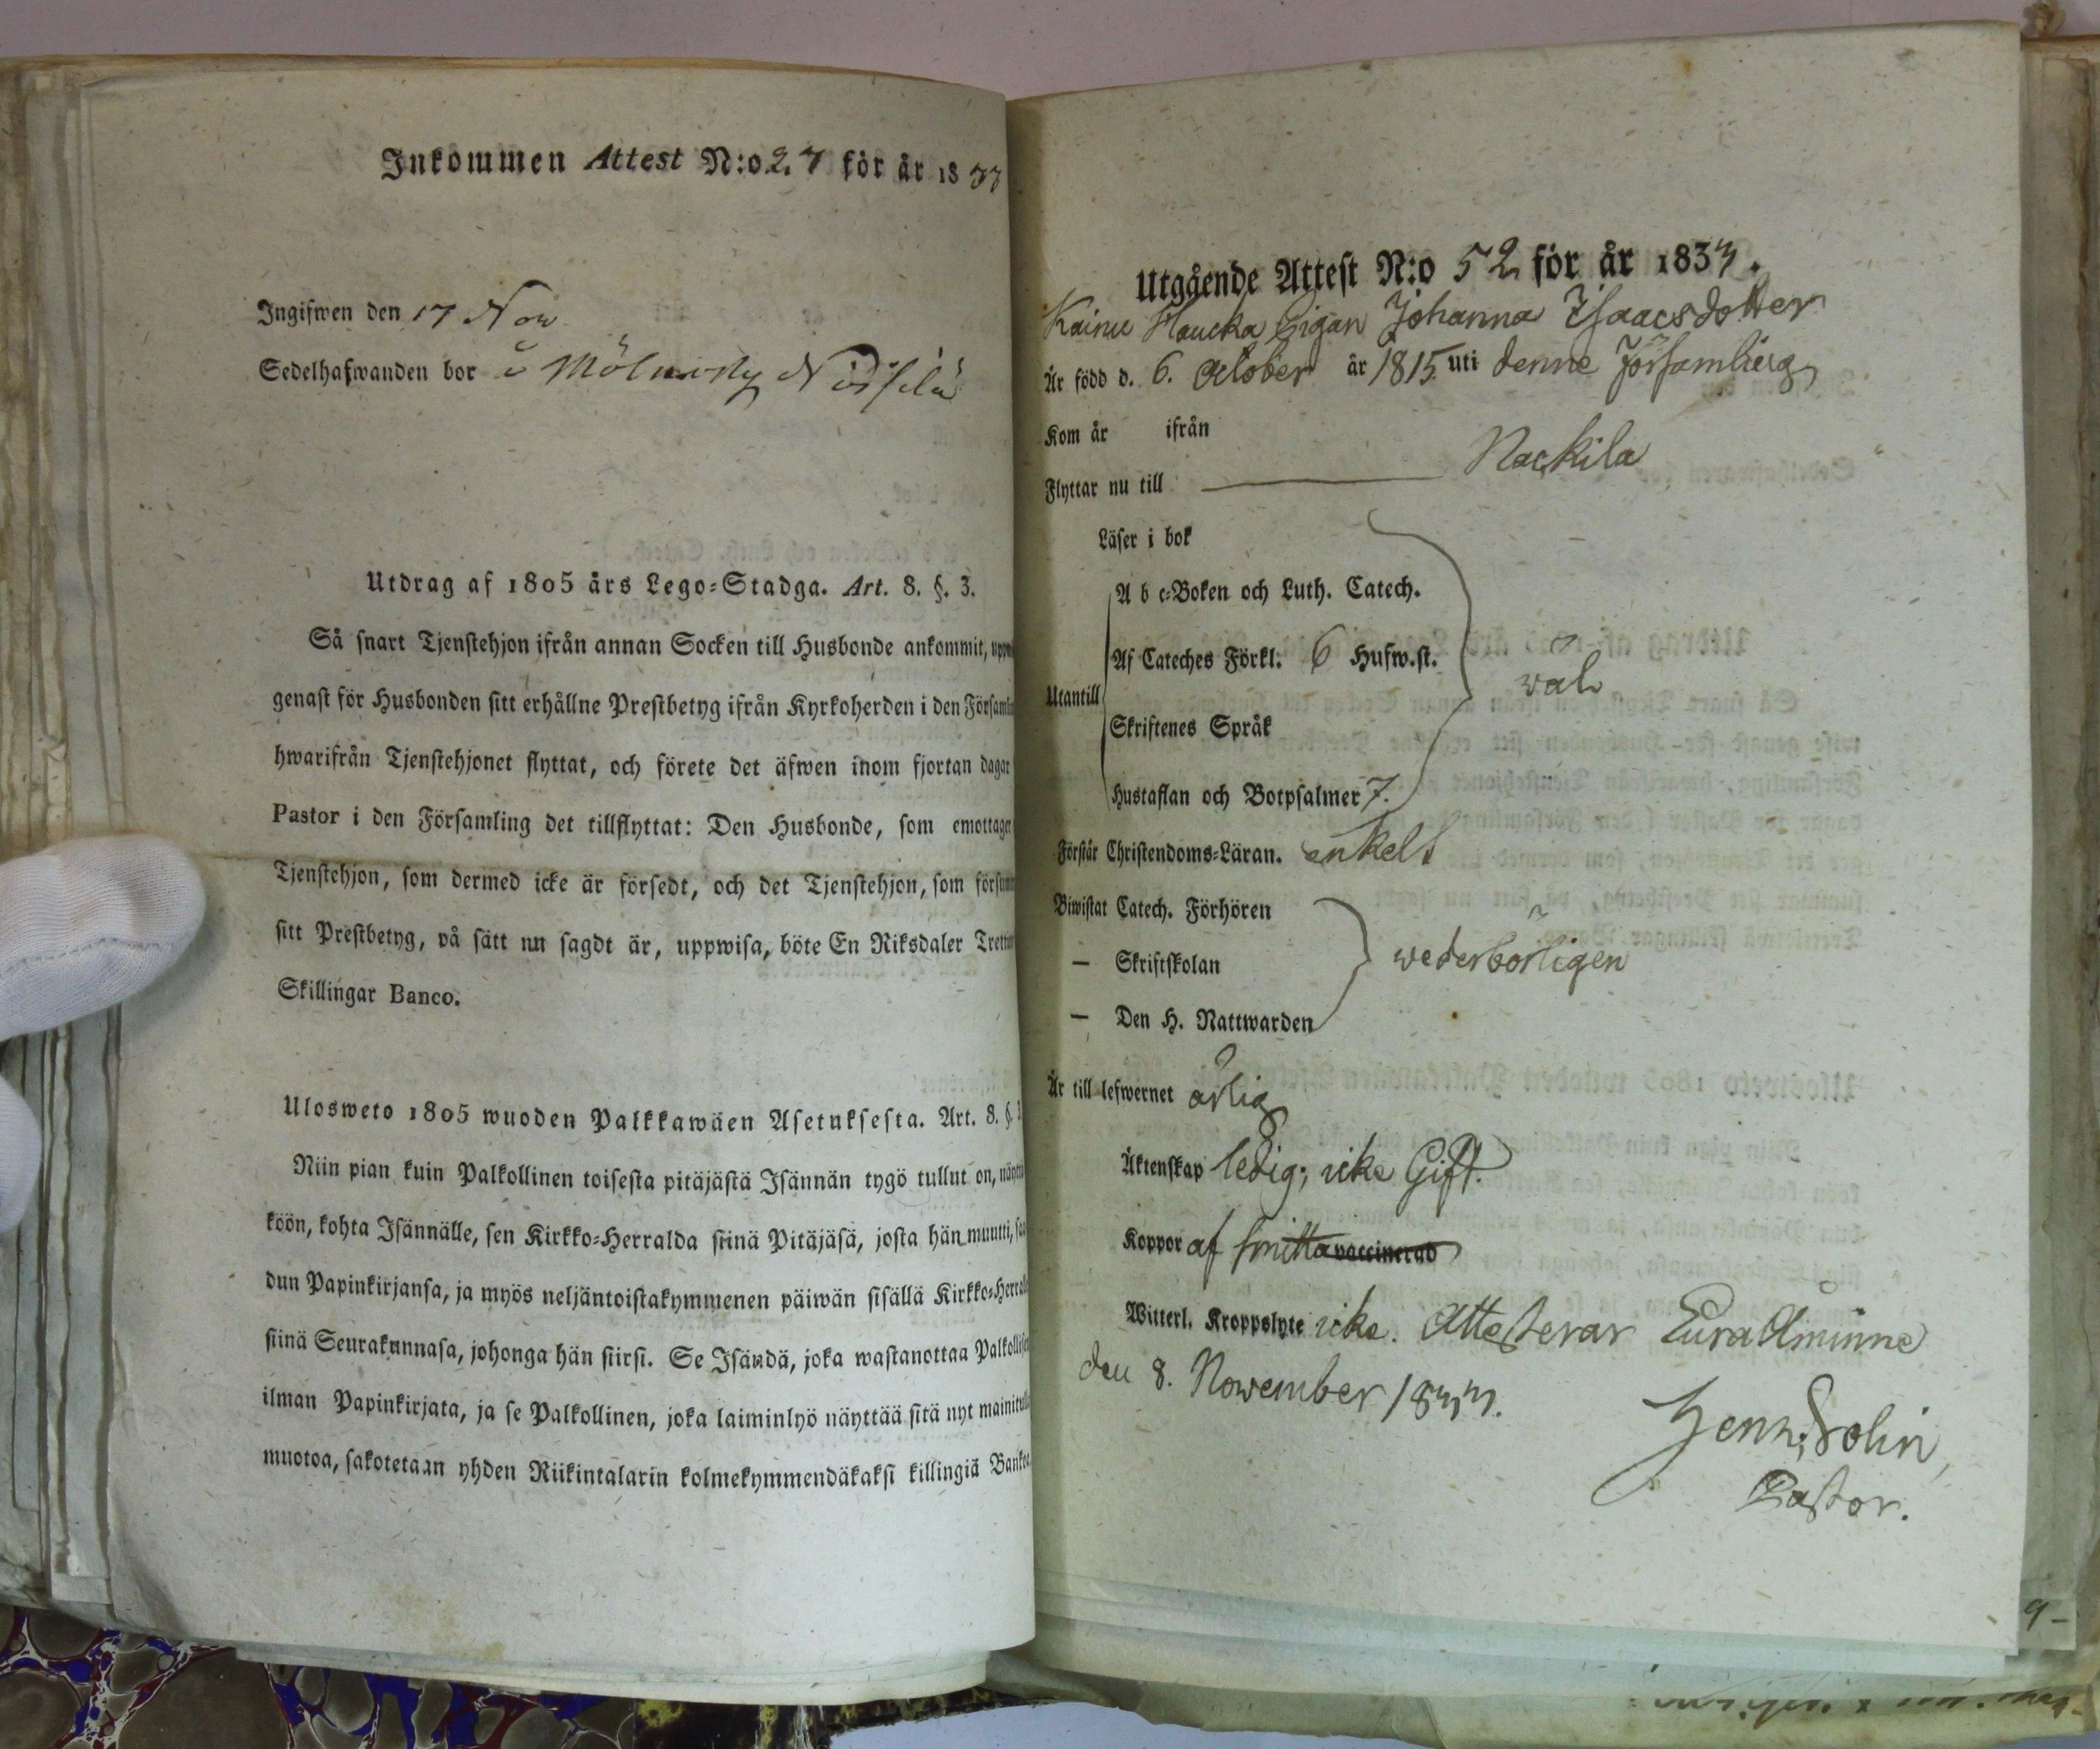 Inkommen Attest N:o 27 för år 1833
Ingifwen den 17 Nov
Sedelhafwanden bor å
Utdrag af 1805 års Lego-Stadga. Art. 8. §. 3.
Så snart Tjenstehjon ifrån annan Socken till Husbonde ankommit,
genast för Husbonden sitt erhållne Prestbetyg ifrån Kyrkoherden i den
hwarifrån Tjenstehjonet flyttat, och förete det äfwen inom fjortan dagar
Pastor i den Församling det tillflyttat: Den Husbonde, som emottager
Tjenstehjon, som dermed icke är försedt, och det Tjenstehjon, som
sitt Prestbetyg, på sätt nu sagdt är, uppwisa, böte En Riksdaler
Skillingar Banco.
Ulosweto 1805 wuoden Palkkawäen Asetuksesta. Art. 8. §.
Niin pian kuin Palkollinen toisesta pitäjästä Isännän tygö tullut on,
köön, kohta Isännälle, sen Kirkko-Herralda siinä Pitäjäsä, josta hän muutti,
dun Papinkirjansa, ja myös neljäntoistakymmenen päiwän sisällä
siinä Seurakunnasa, johonga hän siirsi. Se Isändä, joka wastanottaa
ilman Papinkirjata, ja se Palkollinen, joka laiminlyö näyttää sitä nyt
muotoa, sakotetaan yhden Riikintalarin kolmekymmendäkaksi killingiä
Utgående Attest N:o 52 för år 1833.
Kainu Haucka Pigan Johanna Isaacsdotter
Är född d. 6. October år 1815 uti denne Församling
Kom år ifrån
Flyttar nu till Nackila
Läser i bok
A b c-Boken och Luth. Catech.
Af Cateches Förkl. 6 Hufw.st.
väl
Utantill
Skriftenes Språk
Hustaflan och Botpsalmer 7.
Förstår Christendoms-Läran. enkelt
Biwistat Catech. Förhören
— Skriftskolan wederbörligen
— Den H. Nattwarden
Är till lefwernet ärlig
Äktenskap ledig; icke Gift.
Koppor af smitta vaccinerad
Witterl. Kroppslyte icke. Attesterar Euraåminne
den 8. November 1833.
Henr. Solin,
Pastor.
9-